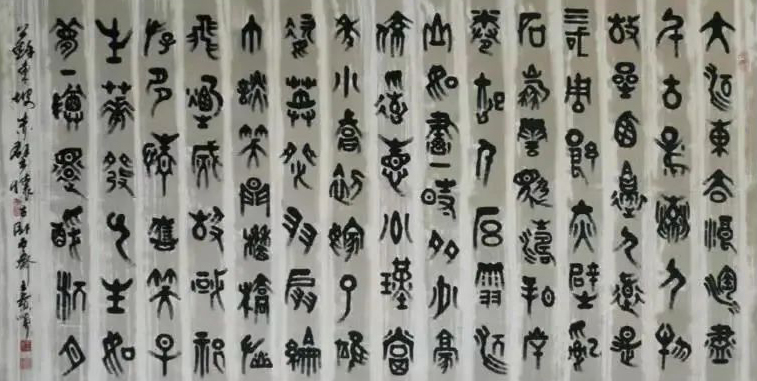 大江東去浪淘盡
千古風流人物
故壘西邊人道是
三國周郎赤壁亂
石崩雲驚濤拍岸
捲起千堆雪江
山如畫一時多少豪
傑遙想公瑾當
年小喬初嫁了雄
姿英發羽扇綸
巾談笑間檣櫓
飛煙滅故國神
游多情應笑早
生華發人生如
夢一樽還酹江月
蘇東坡赤壁懷古